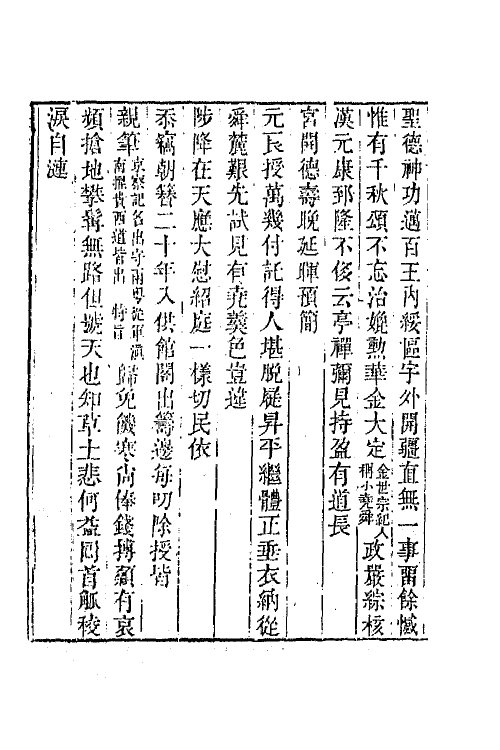 聖德神功邁百王內綏區宇外開疆直無一事留餘憾
惟有千秋頌不忘治媲勳華金大定金世宗紀人稱小堯舜政嚴綜核
漢元康郅隆不侈云亭禪彌見持盈有道長
宮開德壽晚延暉預簡
元良授萬幾付託得人堪脫屣昇平繼體正垂衣納從
舜麓艱先試見有堯羹色豈違
陟降在天應大慰紹庭一樣切民依
忝竊朝簪二十年入供館閣出籌邊每叨除授皆
親筆京察記名出守兩粵從軍滇南擢貴西道皆出特旨歸免饑寒尚俸錢摶顙有哀
頻搶地攀髯無路但號天也知草土悲何益回首觚稜
淚自漣